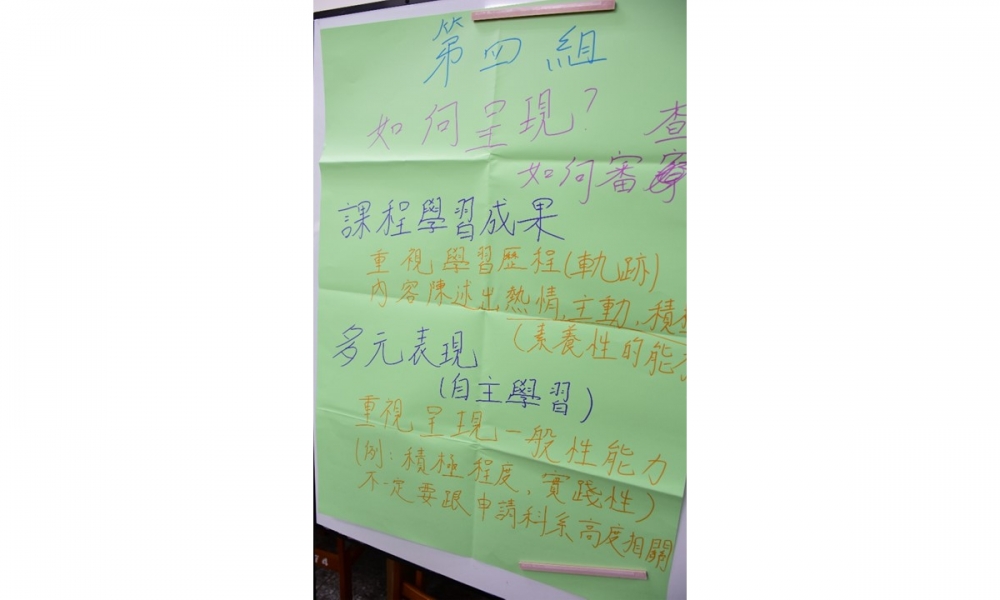 第四組
如何呈現?
查
如何審
課程學習成果
重視學習歷程(軌跡)
內容陳述出熱情,主動,積極
(素養性的能力
多元表現
(自主學習)
重視呈現一般性能力
(例:積極程度,實踐性)
不一定要跟申請科系高度相關
74